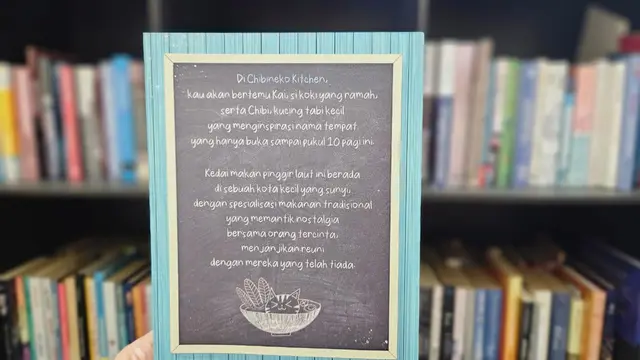 Di Chibineko Kitchen,
kau akan bertemu Kai, si koki yang ramah,
serta Chibi, kucing tabi kecil
yang menginspirasi nama tempat
yang hanya buka sampai pukul 10 pagi ini.
Kedai makan pinggir laut ini berada
di sebuah kota kecil yang sunyi,
dengan spesialisasi makanan tradisional
yang memantik nostalgia
bersama orang tercinta,
menjanjikan reuni
dengan mereka yang telah tiada.